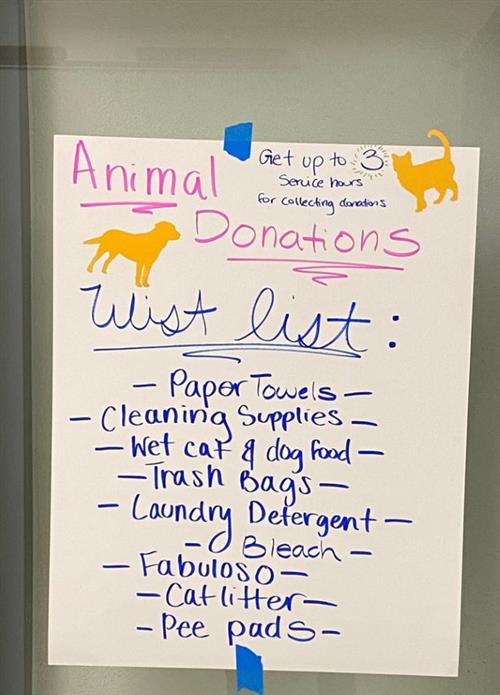 Animal
Get up to 3
Service hours
for collecting donations
Donations
Wist list:
- Paper Towels -
- Cleaning Supplies -
- Wet cat & dog food -
- Trash Bags -
- Laundry Detergent -
- Bleach -
- Fabuloso -
- Cat litter -
- Pee pads -